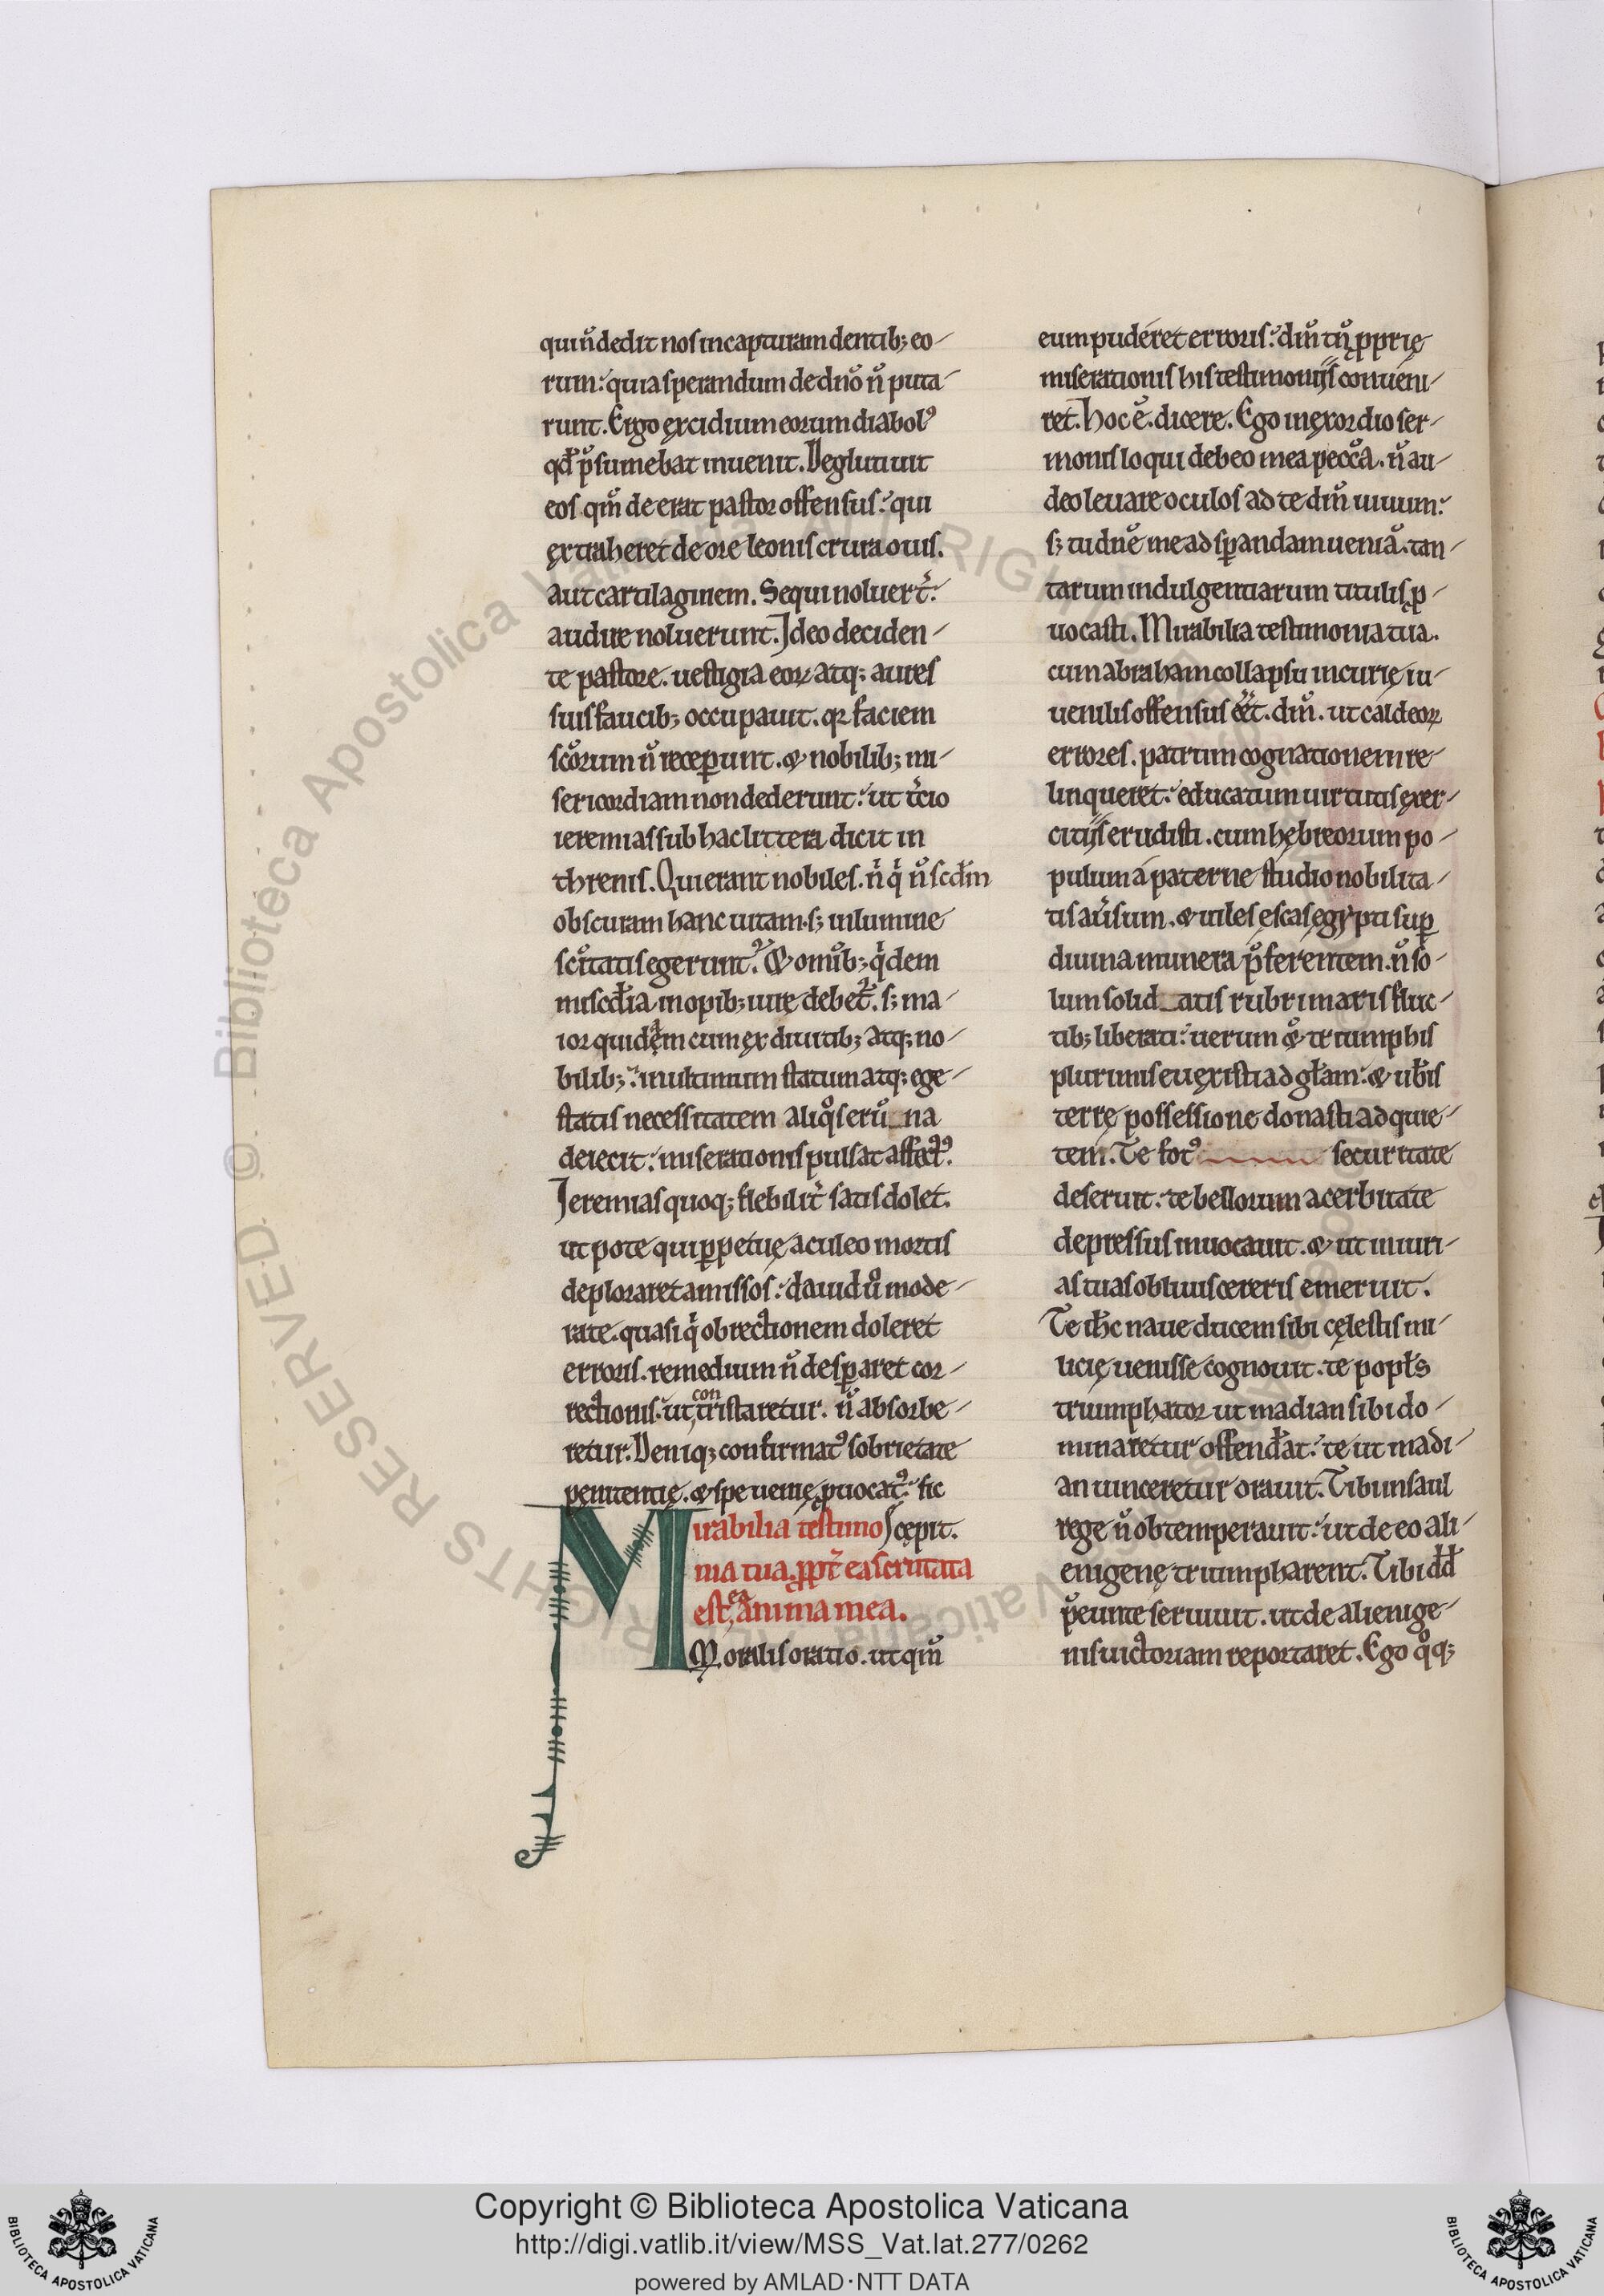 qui ñ dedit nos in capturam dentib; eo-
rum: quia sperandum de dño ñ puta-
runt. Ergo excidium eorum diabol⁹
qd̄ p̄sumebat inuenit. Deglutiuit
eos qm̄ deerat pastor offensus: qui
extraheret de ore leonis crura ouis.
aut cartilaginem. Sequi noluer̄t:
audire noluerunt. Ideo deciden-
te pastore. uestigia eoꝝ atq; aures
suis faucib; occupauit. qꝛ faciem
sc̄orum ñ recep̱unt. & nobilib; mi-
sericordiam non dederunt: ut t̄cio
ieremias sub hac littera dicit in
threnis. Qui erant nobiles. ñ q̇ ñ scd̄m
obscuram hanc uitam. s; in lumine
sc̄itatis egerunt? Et om̄ib; q̇dem
miscd̄ia inopib; iure debet̉. s; ma-
ior quidem cum ex diuitib; atq; no-
bilib; in ultimum statum atq; ege-
statis necessitatem aliq̊s erū_na
deiecit: miserationis pulsat affect⁹.
Jeremias quoq; flebilit̄ satis dolet.
ut pote qui p̱petuę aculeo mortis
deploraret amissos: dauid ů mode-
rate. quasi q̇ ob rectionem doleret
erroris. remedium ñ desp̱aret cor-
rectionis: ut con tristaretur. ñ absorbe-
retur. Deniq; confirmat⁹ sobrietate
penitentię. & spe uenię ꝓuocat⁹: sic
Mirabilia testimo ſcepit.
nia tua. ꝓpt̄ ea scrutata
est ea anima mea.
Moralis oratio. ut qm̄
eum puderet erroris: dm̄ tñ ꝓprię
miserationis his testimonijs conueni-
ret. Hoc ē. dicere. Ego in exordio ser-
monis loqui debeo mea pecc̄a. ñ au-
deo leuare oculos ad te dm̄ uiuum:
s; tu dñe me ad sp̱andam ueniā. tan-
tarum indulgentiarum titulis ꝓ-
uocasti. Mirabilia testimonia tua.
cum abraham collapsu incurię iu-
uenilis offensus eēt. dm̄. ut caldeoꝝ
errores. patrum cognationem re-
linqueret: educatum uirtutis exer-
citijs erudisti. cum hebreorum po-
pulum a paterne studio nobilita-
tis au̇sum. & uiles escas egypti sup̱
diuina munera p̄ferentem. ñ so-
lum solid_atis rubri maris fluc-
tib; liberati: uerum & triumphis
plurimis euexisti ad gl̄am: & ub̄is
terrę possessione donasti ad quie-
tem. Te fot⁹ securitate
deseruit: te bellorum acerbitate
depressus inuocauit. & ut iniuri-
as tuas obliuiscereris emeruit.
Te ih̄c naue ducem sibi cęlestis mi-
licię uenisse cognouit. te popl̄s
triumphator ut madian sibi do-
minaretur offend̄at: te ut madi-
an uinceretur orauit. Tibi in saul
rege ñ obtemperauit: ut de eo ali-
enigenę triumpharent. Tibi dd̄
p̄eunte seruiuit. ut de alienige-
nis uictoriam reportaret. Ego q̊q;
Copyright © Biblioteca Apostolica Vaticana
http://digi.vatlib.it/view/MSS_Vat.lat.277/0262
powered by AMLAD·NTT DATA
BIBLIOTECA APOSTOLICA VATICANA
BIBLIOTECA APOSTOLICA VATICANA